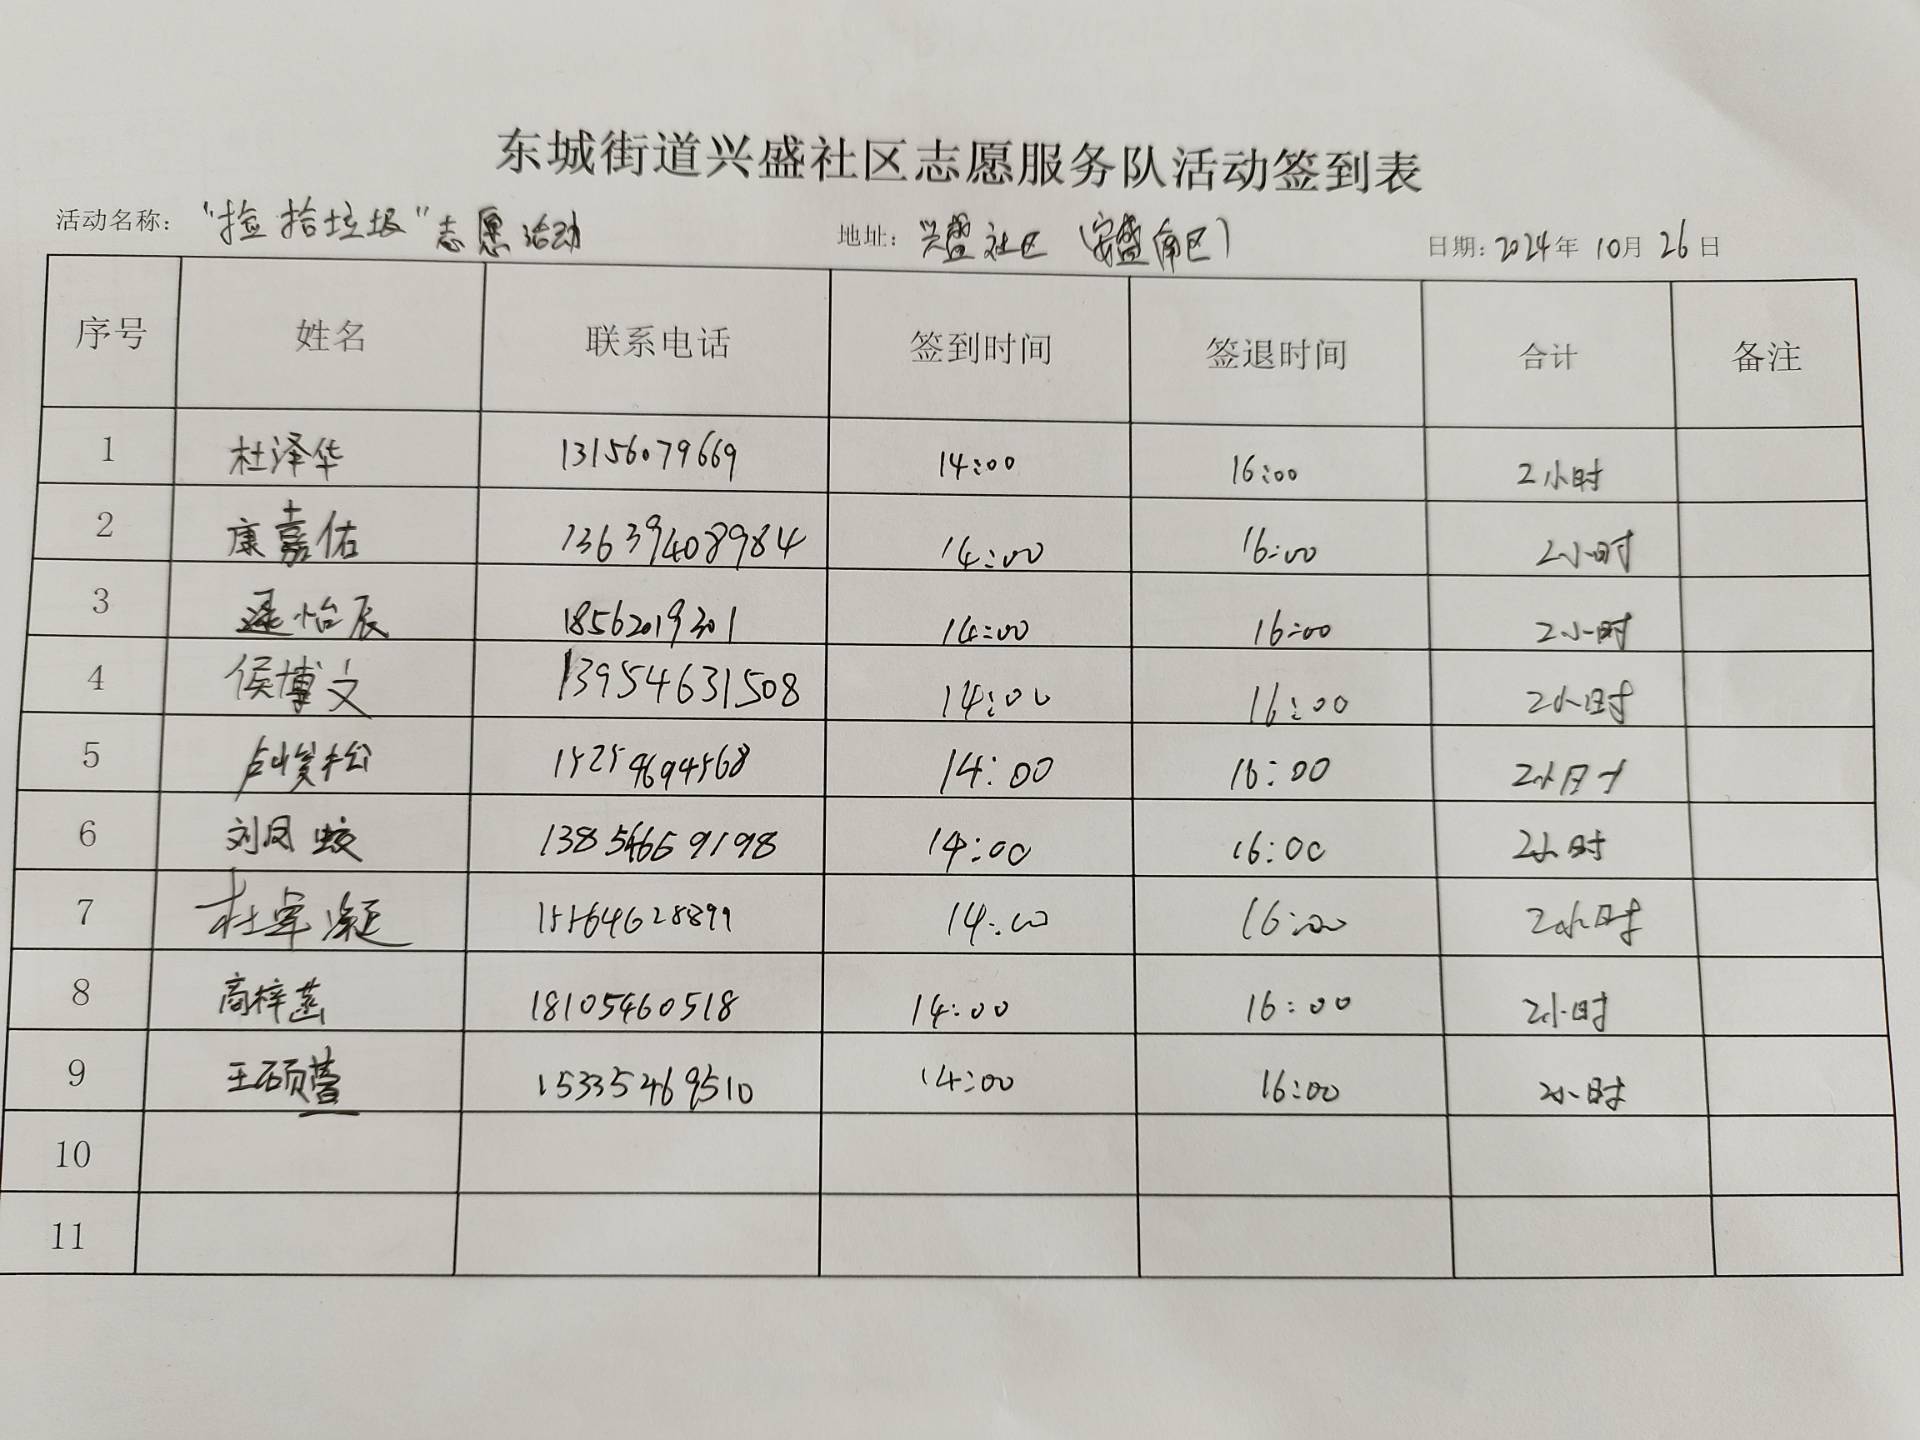 东城街道兴盛社区志愿服务队活动签到表
活动名称："捡拾垃圾"志愿活动 地址：兴盛社区（安盛南区） 日期：2024年10月26日
序号 姓名 联系电话 签到时间 签退时间 合计 备注
1 杜泽华 13156079669 14:00 16:00 2小时
2 康嘉佑 13639408984 14:00 16:00 2小时
3 逯怡辰 18562019301 14:00 16:00 2小时
4 侯博文 13954631508 14:00 16:00 2小时
5 卢俊松 15254694568 14:00 16:00 2小时
6 刘凤蛟 13854669198 14:00 16:00 2小时
7 杜 凝 15564628899 14:00 16:00 2小时
8 高梓菡 18105460518 14:00 16:00 2小时
9 王硕萱 15335469510 14:00 16:00 2小时
10
11